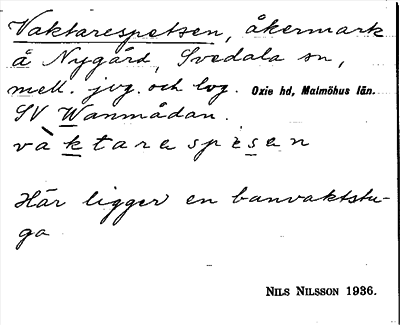 Vaktarespetsen, åkermark
å Nygård, Svedala sn,
mell. jvg. och lvg. Oxie hd, Malmöhus län.
SV Wanmådan.
vàktarespisen
Här ligger en banvaktstu-
ga
NILS NILSSON 1936.